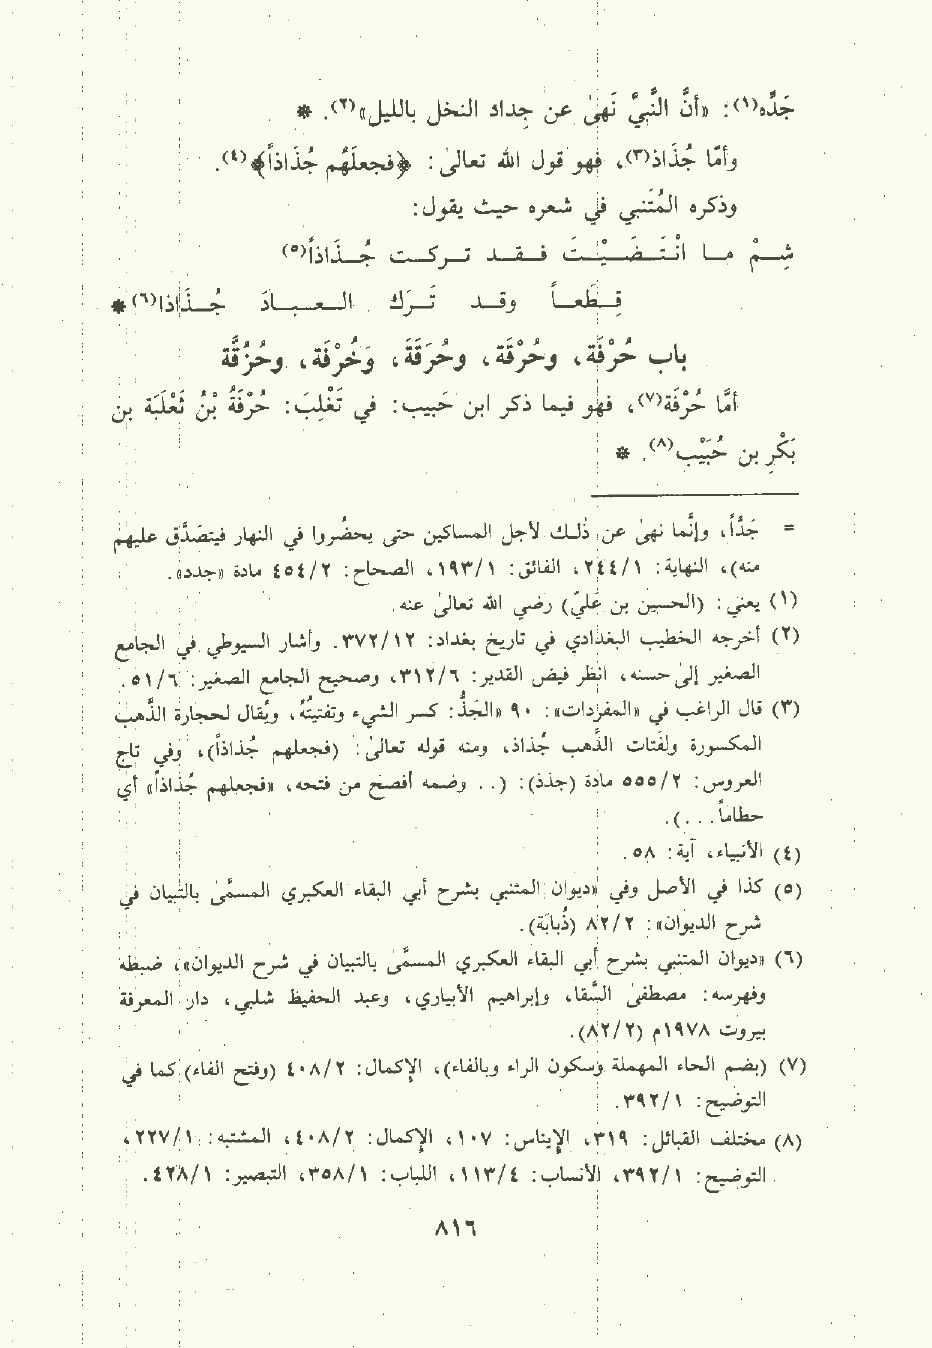 جَدِّه(١): «أنَّ النَّبيَّ نَهىٰ عن جداد النخل بالليل»(٢). *
وأمّا جُذَاذ(٣)، فهو قول الله تعالىٰ: ﴿فجعلَهُم جُذَاذاً﴾(٤).
وذكره المُتَنبي في شعره حيث يقول:
شِـمْ مـا انْـتَـضَـيْـتَ فـقـد تـركـت جُـذَاذاً(٥)
قِـطَعـاً وقـد تَـرَكَ الـعـبـادَ جُـذَاذا(٦) *
باب حُرْفَة، وحُرْقَة، وحُرَقَة، وَخُرْفَة، وحُزُقَّة
أمَّا حُرْفَة(٧)، فهو فيما ذكر ابن حَبيب: في تَغْلِبَ: حُرْفَةُ بْنُ ثَعْلَبَة بن
بَكْرِ بن حُبَيْب(٨). *
= جَدّاً، وإنَّما نهىٰ عن ذلك لأجل المساكين حتى يحضُروا في النهار فيتصَدّق عليهم
منه)، النهاية: ١/٢٤٤، الفائق: ١/١٩٣، الصحاح: ٢/٤٥٤ مادة «جدد».
(١) يعني: (الحسين بن عليّ) رضي الله تعالىٰ عنه.
(٢) أخرجه الخطيب البغدادي في تاريخ بغداد: ١٢/٣٧٢. وأشار السيوطي في الجامع
الصغير إلىٰ حسنه، انظر فيض القدير: ٦/٣١٢، وصحيح الجامع الصغير: ٦/٥١.
(٣) قال الراغب في «المفردات»: ٩٠ «الجَذُّ: كسر الشيء وتفتيتُهُ، ويُقال لحجارة الذَّهب
المكسورة ولفتات الذَّهب جُذاذ، ومنه قوله تعالىٰ: (فجعلهم جُذاذاً)، وفي تاج
العروس: ٢/٥٥٥ مادة (جذذ): (. . وضمه أفصح من فتحه، «فجعلهم جُذاذاً» أي
حطاماً. . .).
(٤) الأنبياء، آية: ٥٨.
(٥) كذا في الأصل وفي «ديوان المتنبي بشرح أبي البقاء العكبري المسمَّى بالتبيان في
شرح الديوان»: ٢/٨٢ (ذُبابَة).
(٦) «ديوان المتنبي بشرح أبي البقاء العكبري المسمَّى بالتبيان في شرح الديوان»، ضبطه
وفهرسه: مصطفىٰ السقا، وإبراهيم الأبياري، وعبد الحفيظ شلبي، دار المعرفة
بيروت ١٩٧٨م (٢/٨٢).
(٧) (بضم الحاء المهملة وسكون الراء وبالفاء)، الإكمال: ٢/٤٠٨ (وفتح الفاء) كما في
التوضيح: ١/٣٩٢.
(٨) مختلف القبائل: ٣١٩، الإيناس: ١٠٧، الإكمال: ٢/٤٠٨، المشتبه: ١/٢٢٧،
التوضيح: ١/٣٩٢، الأنساب: ٤/١١٣، اللباب: ١/٣٥٨، التبصير: ١/٤٢٨.
٨١٦